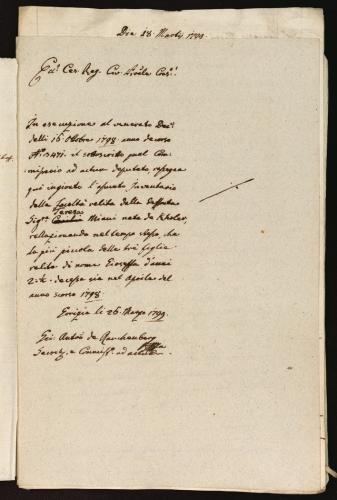 Die 28. Marty 1799.
Ecc. Ces. Reg. Civ. Aula Cons.
In esecuzione al venerato Dec.
delli 16. Ottobre 1798 anno decorso
N. 15471. il sottoscritto qual Com-
missario ad actum deputato, rassegna
quì ingionto l'assunto Inventario
della facoltà relita dalla defonta
Sig.ra Teresa Miani nata de Kholer,
rellazionando nel tempo stesso, che
la più piccola delle trè figlie
relite di nome Gioseffa d'anni
2½. decessa sia nel Aprile del
anno scorso 1798.
Gorizia li 26. Marzo 1799.
Gio: Ant.o de Rauchenberg
Secret. e Commiss. ad actum